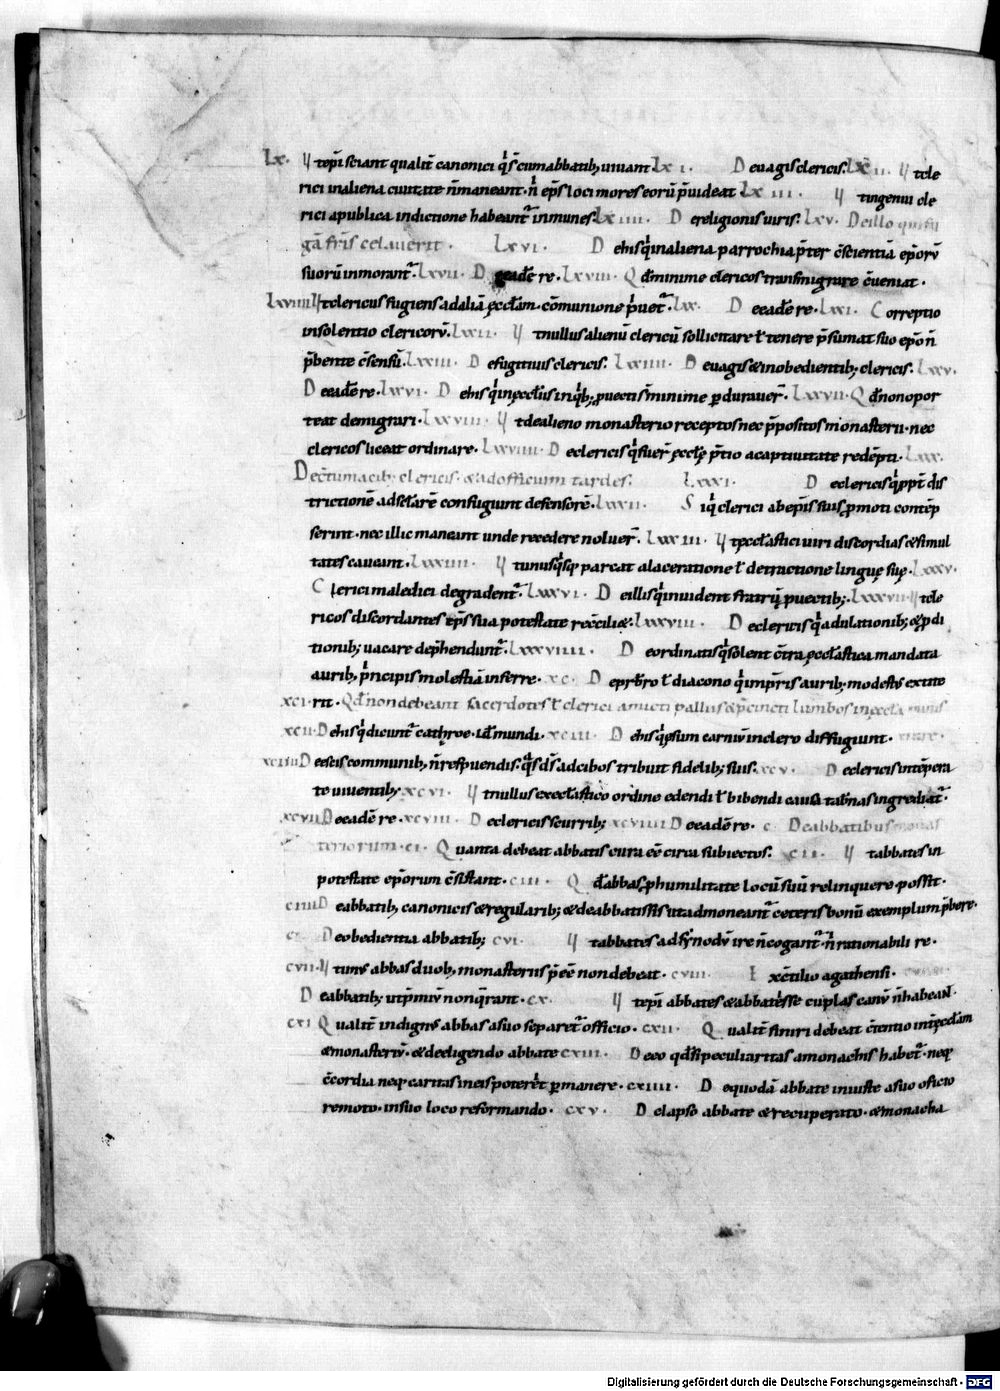 Lx. Ut ep̄i sciant qualit̄ canonici q̄s c̄um abbatib; uiuant Lxi. De uagis clericis. Lxii. Ut cle
rici in aliena ciuitate n̄ maneant. n̄ ep̄s loci mores eorū p̄uideat Lxiii. Ut ingenui cle
rici a publica indictione habeant̄ inmunes. Lxiiii. De religionis uiris. Lxv. De illo qui fu
gā fr̄is celauerit. Lxvi. De his q̄ in aliena parrochia p̄ter c̄scientiā ep̄orū
suorū inmorant̄. Lxvii. De eadē re. Lxviii. Qd̄ minime clericos transmigrare c̄ueniat.
Lxviiii. Ut clericus fugiens ad aliā ęcclam communione p̄uet̄. Lxx. De eadē re. Lxxi. Correptio
insolentio clericorū. Lxxii. Ut nullus alienū clericū sollicitare ł tenere p̄sumat suo ep̄o n̄
p̄bente c̄sensū. Lxxiii. De fugitiuis clericis. Lxxiiii. De uagis & inobedientib; clericis. Lxxv.
De eadē re. Lxxvi. De his q̄ in ęccliis in q̄b; puecti s̄ minime pdurauer̄. Lxxvii. Qd̄ non opor
teat demigrari. Lxxviii. Ut de alieno monasterio receptos nec p̄positos monasterii. nec
clericos liceat ordinare. Lxxviiii. De clericis q̄ fuer̄ ęccłę p̄tio a captiuitate redēpti. Lxxx.
De c̄tumacib; clericis. & ad officium tardis. Lxxxi. De clericis q̄ ppt̄ dis
trictionē ad sęłarē confugiunt defensorē. Lxxxii. Si q̄ clerici ab ep̄is suis pmoti contēp
serint. nec illic maneant unde recedere noluer̄. Lxxxiii. Ut ęccłastici uiri discordias & simul
tates caueant. Lxxxiiii. Ut unusq̄sq; parcat a laceratione ł detractione linguę suę. Lxxxv.
Clerici maledici degradent̄. Lxxxvi. De illis q̄ inuident fratrū puectib;. Lxxxvii. Ut cle
ricos discordantes ep̄s sua potestate rec̄ciliet. Lxxxviii. De clericis q̄ adulationib; & pdi
tionib; uacare dep̄hendunt̄. Lxxxviiii. De ordinatis q̄ solent c̄tra ęccłastica mandata
aurib; p̄ncipis molestiā inferre. xc. De pr̄bro ł diacono q̄ imp̄ris aurib; modestus extite
xci. rit. Qd̄ non debeant sacerdotes ł clerici amicti palliis & p̄cincti lumbos in ęccła
xcii. De his q̄ dicunt̄ cathroe. id̄ mundi. xciii. De his q̄ esum carniū in clero diffugiunt.
xciiii De escis communib; n̄ respuendis. q̄s d̄s ad cibos tribuit fidelib; suis. xcv. De clericis intēpera
te uiuentib; xcvi. Ut nullus ex ecclastico ordine edendi ł bibendi causa tab̄nas ingrediat̄.
xcvii De eadē re. xcviii. De clericis scurrib; xcviiii De eadē re. c. De abbatibus monas
teriorum. ci. Quanta debeat abbatis cura eē circa subiectos. cii. Ut abbates in
potestate ep̄orum c̄sistant. ciii. Qd̄ abbas p humilitate locū suū relinquere possit.
ciiii De abbatib; canonicis & regularib; & de abbatissis ut admoneant̄ ceteris bonū exemplum p̄bere.
De obedientia abbatib; cvi. Ut abbates ad synodū ire n̄ cogant̄. n̄ rationabili re.
cvii. Ut unus abbas duob; monasteriis p̄eē non debeat. cviii. Ex c̄cilio agathensi.
De abbatib; ut p̄miū non q̄rant. cx. Ut ep̄i abbates & abbatesse cuplas canū n̄ habeant.
cxi Qualit̄ indignus abbas a suo separet̄ officio. cxii. Qualit̄ finiri debeat c̄tentio int̄ ęccłam
& monasteriū. & de eligendo abbate cxiii. De eo qd̄ si peculiaritas a monachis habet̄. neq;
c̄cordia neq; caritas in eis poterēt pmanere. cxiiii. De quodā abbate iniuste a suo oficio
remoto. in suo loco reformando. cxv. De lapso abbate & recuperato. & monacha
Digitalisierung gefördert durch die Deutsche Forschungsgemeinschaft - DFG